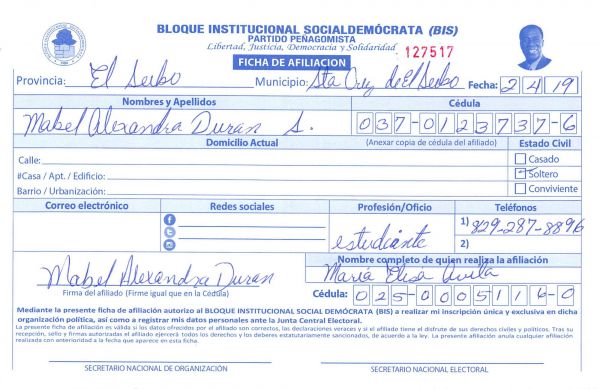 BLOQUE INSTITUCIONAL SOCIALDEMÓCRATA (BIS)
PARTIDO PEÑAGOMISTA
Libertad, Justicia, Democracia y Solidaridad
127517
FICHA DE AFILIACION
Provincia: El Seibo Municipio: Sta Cruz de El Seibo Fecha: 2 4 19
Nombres y Apellidos Cédula
Mabel Alexandra Duran S. 037-0123737-6
Domicilio Actual (Anexar copia de cédula del afiliado) Estado Civil
Calle: Casado
#Casa / Apt. / Edificio: Soltero
Barrio / Urbanización: Conviviente
Correo electrónico Redes sociales Profesión/Oficio Teléfonos
estudiante 1) 829-287-8896
2)
Nombre completo de quien realiza la afiliación
Mabel Alexandra Duran María Elisa Avila
Firma del afiliado (Firme igual que en la Cédula) Cédula: 025-0005116-0
Mediante la presente ficha de afiliación autorizo al BLOQUE INSTITUCIONAL SOCIAL DEMÓCRATA (BIS) a realizar mi inscripción única y exclusiva en dicha
organización política, así como a registrar mis datos personales ante la Junta Central Electoral.
La presente ficha de afiliación es válida si los datos ofrecidos por el afiliado son correctos, las declaraciones veraces y si el afiliado tiene el disfrute de sus derechos civiles y políticos. Tras su
recepción, sello y firmas autorizadas el afiliado ejercerá todos los derechos y los deberes estatutariamente sancionados, de acuerdo a la ley. La presente afiliación anula cualquier afiliación
realizada con anterioridad a la fecha que aparece en esta ficha.
SECRETARIO NACIONAL DE ORGANIZACIÓN SECRETARIO NACIONAL ELECTORAL